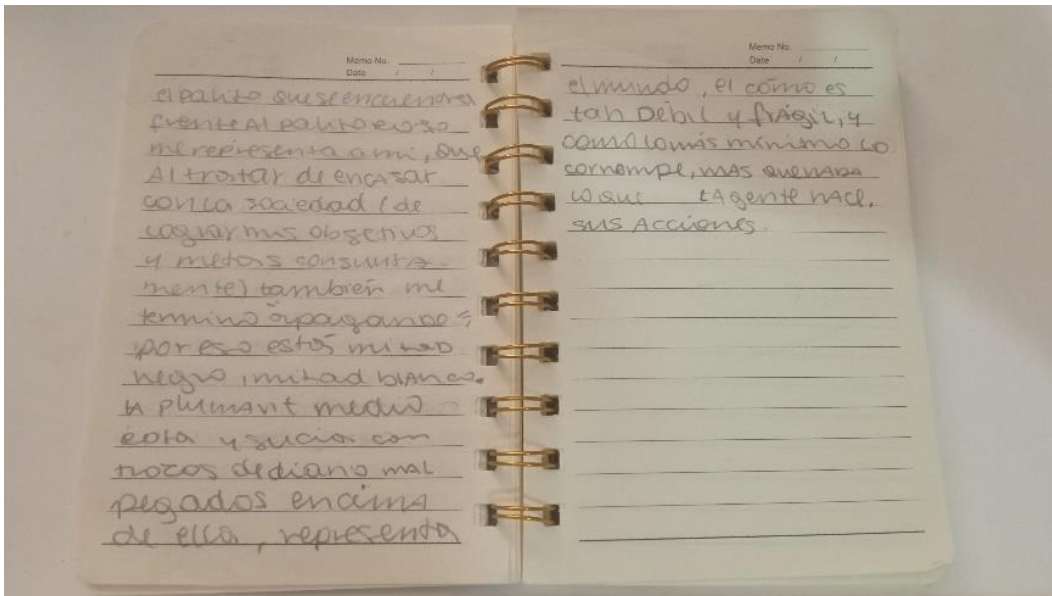 Memo No.
Date / /
el palito que se encuentra
frente Al palito rojo
me representa a mi, que
Al tratar de encajar
con la sociedad (de
lograr mis objetivos
y metas conjunta-
mente) también me
termino "apagando",
por eso estás mitad
negro, mitad blanco.
la plumavit medio
rota y sucia con
trozos de diario mal
pegados encima
de ella, representa
Memo No.
Date / /
el mundo, el cómo es
tan Débil y frágil, y
como lo más mínimo lo
corrompe, mas que nada
lo que LA gente hace,
sus Acciones.